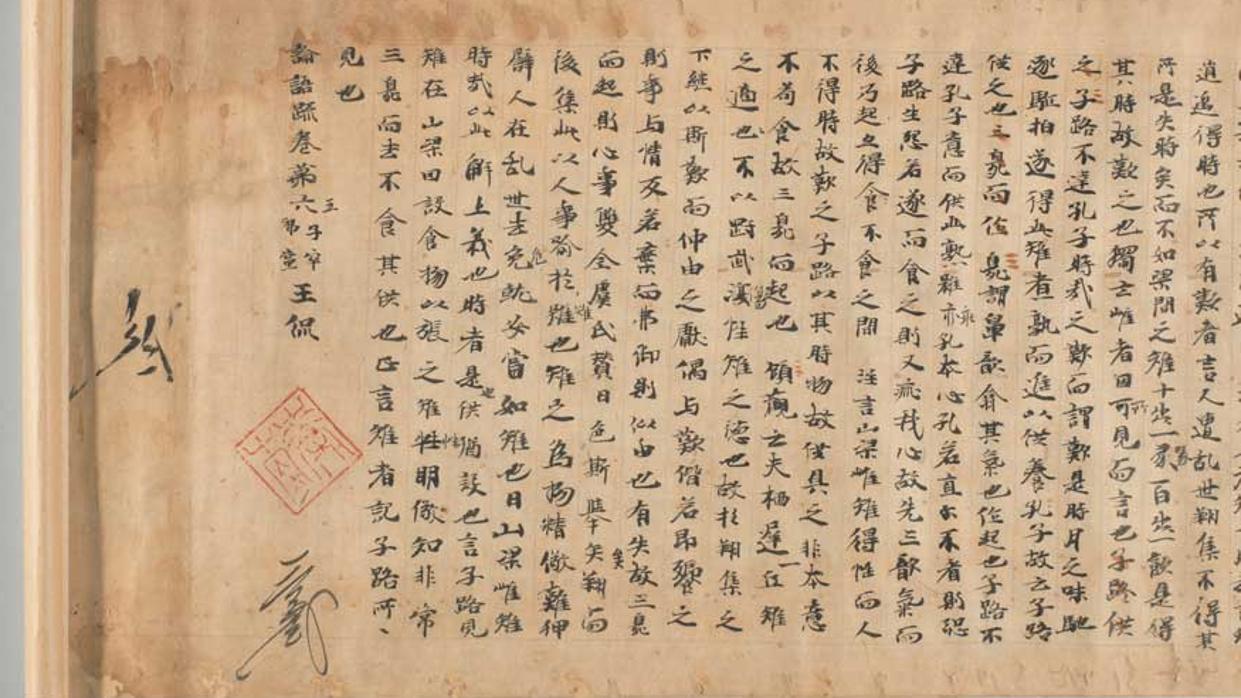 逍遥得時也所以有歎者言人遭乱世翔集不得其
所是失時矣而不如梁間之雉十歩一啄百歩一飲是得
其時故歎之也獨云雌者因所可見而言也子路供
之子路不達孔子時哉之歎而謂歎是時月之味馳
逐駈拍遂得此雉煮熟而進以供養孔子故云子路
供之也三臭而作 臭謂鼻歆翕其氣也作起也子路不
達孔子意而供此熟難乖孔本心孔若直尒不者則恐
子路生怨若遂而食之則又乖我心故先三歆氣而
後乃起亦得食不食之間 注言山梁雌雉得性而人
不得時故歎之子路以其時物故供具之非本意
不苟食故三臭而起也 顧歡云夫栖遅一丘雉
之適也不以剛武傷性雉之徳也故於翔集之
下継以斯歎而仲由之獻偶与歎偕若即饗之
則事与情反若棄而弗御則似由也有失故三臭
而起則心事雙全虞氏賛曰色斯挙矣翔而
後集此以人事喩於雉也雉之為物精儆難狎
譬人在乱世去危就安當如雉也曰山梁雌雉
時哉以此解上義也時者是也供猶設也言子路見
雉在山梁因設食物以張之雉性明儆知非常
三臭而去不食其供也正言雉者記子路所ゝ
見也
論語疏巻第六 子罕 王侃